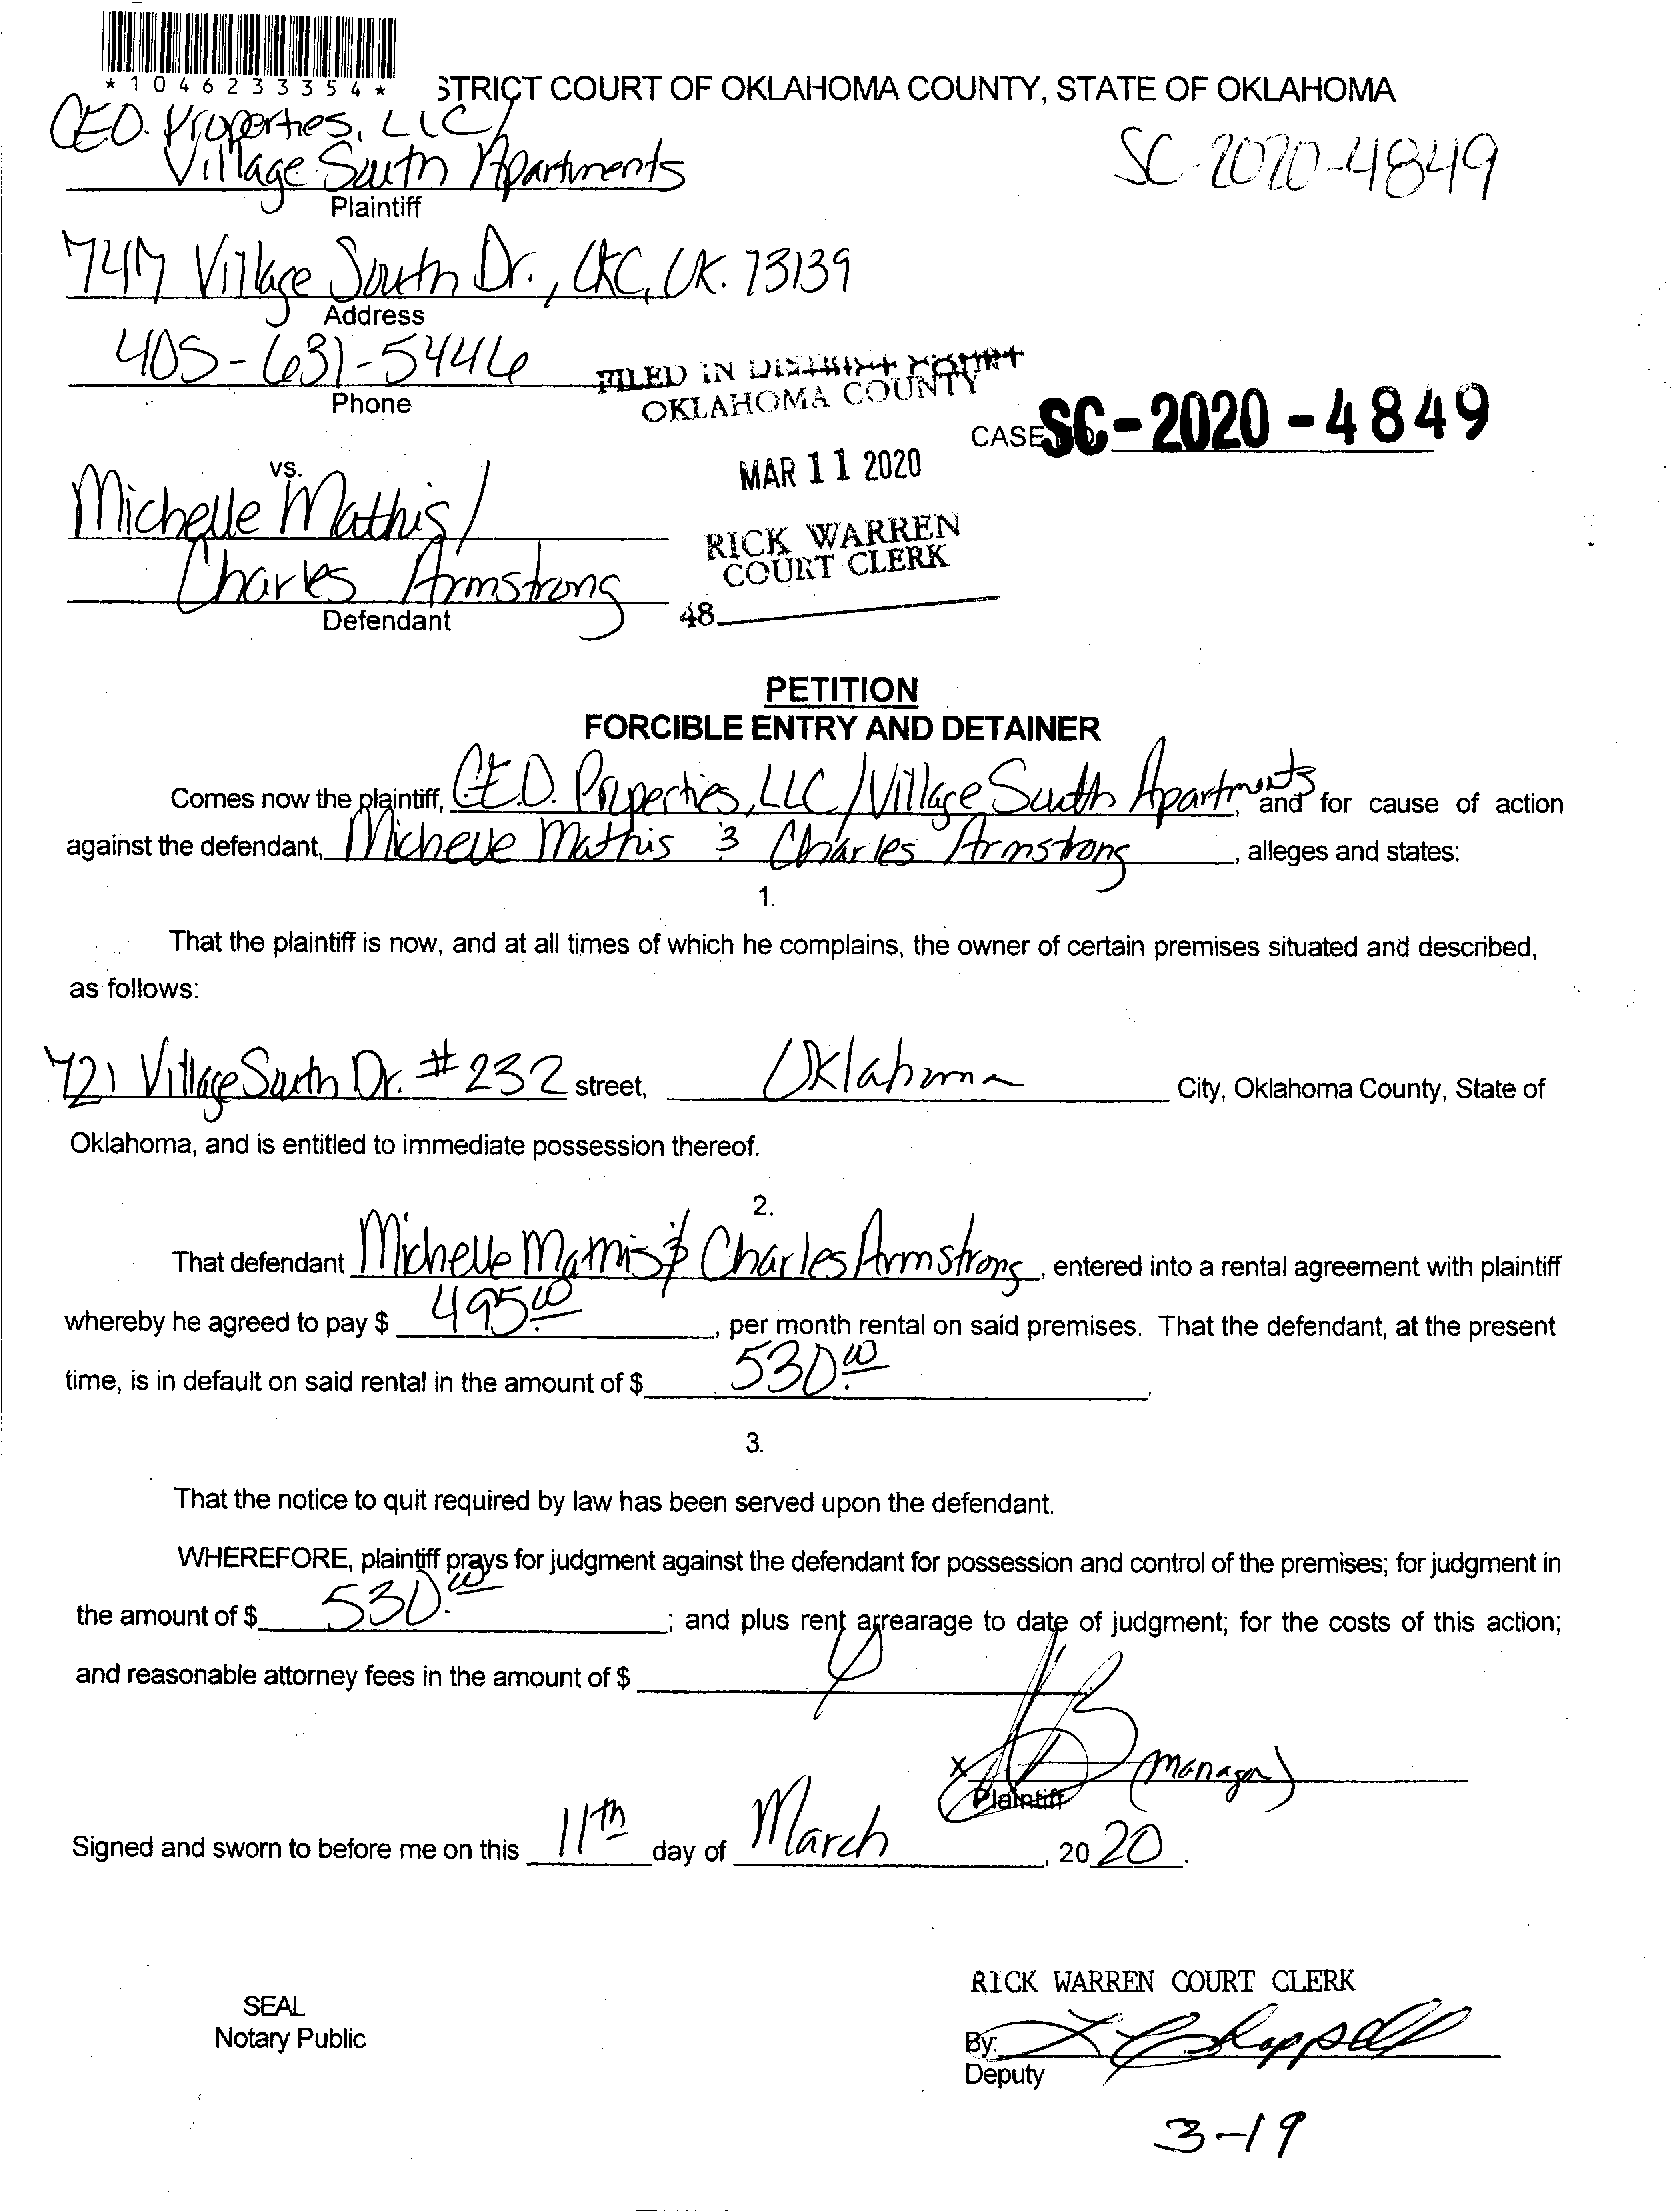 *1046233354*
STRICT COURT OF OKLAHOMA COUNTY, STATE OF OKLAHOMA
C.E.D. Properties, LLC/
Village South Apartments
SC-2020-4849
Plaintiff
747 Village South Dr., OKC, OK. 73139
Address
405-631-5446
Phone
FILED IN DISTRICT COURT
OKLAHOMA COUNTY
CASE SC-2020-4849
MAR 11 2020
vs.
Michelle Mathis/
RICK WARREN
COURT CLERK
Charles Armstrong
Defendant
48
PETITION
FORCIBLE ENTRY AND DETAINER
Comes now the plaintiff, C.E.D. Properties, LLC/Village South Apartments, and for cause of action
against the defendant, Michelle Mathis & Charles Armstrong, alleges and states:
1.
That the plaintiff is now, and at all times of which he complains, the owner of certain premises situated and described,
as follows:
721 Village South Dr. #232 street, Oklahoma City, Oklahoma County, State of
Oklahoma, and is entitled to immediate possession thereof.
2.
That defendant Michelle Mathis & Charles Armstrong, entered into a rental agreement with plaintiff
whereby he agreed to pay $ 495.00, per month rental on said premises. That the defendant, at the present
time, is in default on said rental in the amount of $ 530.00.
3.
That the notice to quit required by law has been served upon the defendant.
WHEREFORE, plaintiff prays for judgment against the defendant for possession and control of the premises; for judgment in
the amount of $ 530.00; and plus rent arrearage to date of judgment; for the costs of this action;
and reasonable attorney fees in the amount of $
x (Manager)
Plaintiff
Signed and sworn to before me on this 11th day of March, 2020.
RICK WARREN COURT CLERK
SEAL
Notary Public
By: Chappell
Deputy
3-19